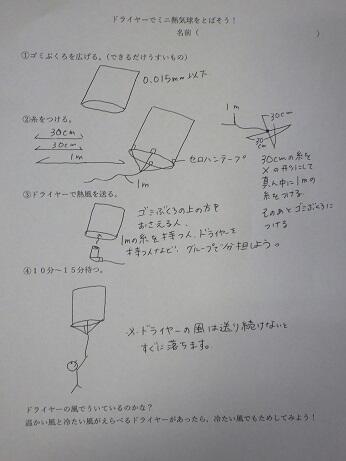 ドライヤーでミニ熱気球をとばそう!
名前( )
①ゴミぶくろを広げる。(できるだけうすいもの)
0.015mm以下
②糸をつける。
30cm
30cm
1m
1m
セロハンテープ
1m
30cm
30cm
30cmの糸を
Xの形にして
真ん中に1mの
糸をつける
そのあとゴミぶくろに
つける
③ドライヤーで熱風を送る。
ゴミぶくろの上の方を
おさえる人、
1mの糸を持つ人、ドライヤーを
持つ人など、グループで分担しよう。
④10分~15分待つ。
×ドライヤーの風は送り続けないと
すぐに落ちます。
ドライヤーの風でういているのかな?
温かい風と冷たい風がえらべるドライヤーがあったら、冷たい風でもためしてみよう!